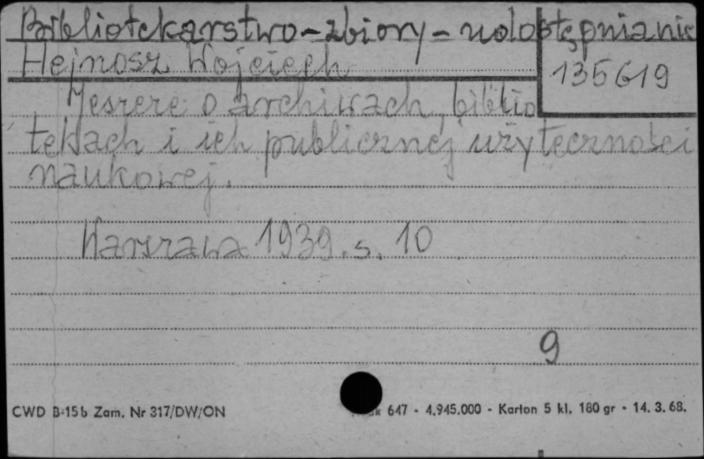 Bibliotekarstwo - zbiory - udostępnianie
Hejnosz Wojciech
135619
Jeszcze o archiwach, biblio
tekach i ich publicznej użyteczności
naukowej.
Warszawa 1939. s. 10
9
CWD B-15b Zam. Nr 317/DW/ON
647 - 4.945.000 - Karton 5 kl. 180 gr - 14. 3. 68.